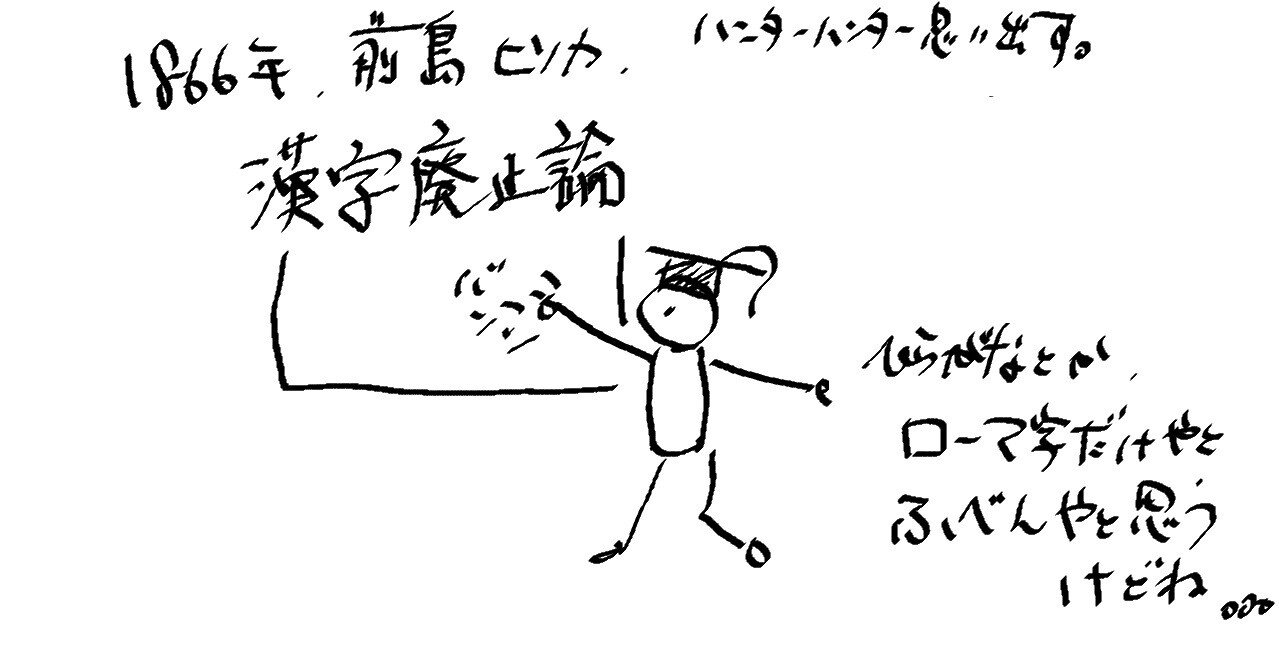 1866年、前島ヒソカ、
ハンターハンター思い出す。
漢字廃止論
バーン
ひらがなとか、
ローマ字だけやと
ふべんやと思う
けどね...